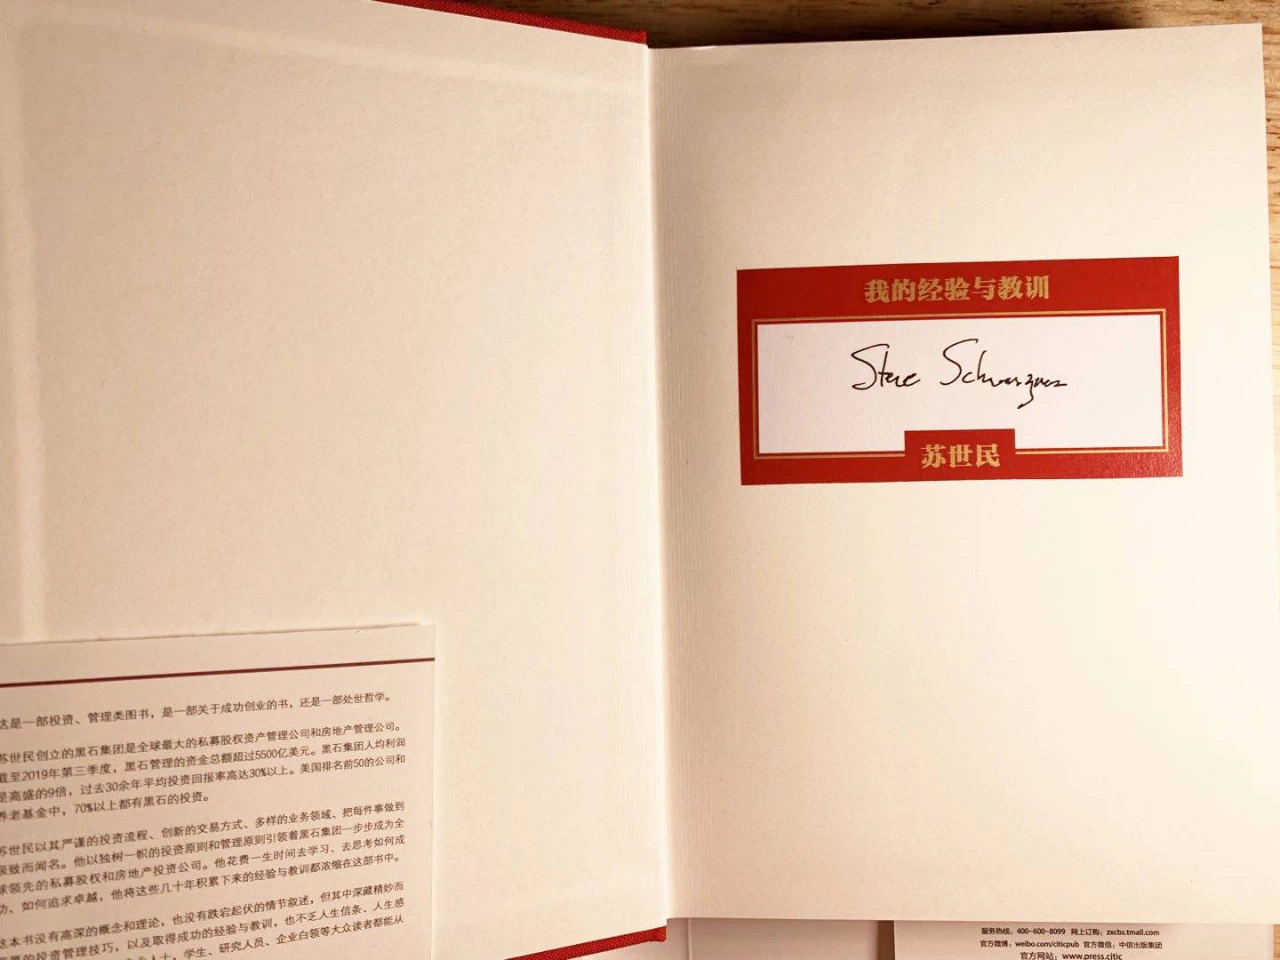 我的经验与教训
Steve Schwarzman
苏世民
这是一部投资、管理类图书，是一部关于成功创业的书，还是一部处世哲学。
苏世民创立的黑石集团是全球最大的私募股权资产管理公司和房地产管理公司。
截至2019年第三季度，黑石管理的资金总额超过5500亿美元。黑石集团人均利润
是高盛的9倍，过去30余年平均投资回报率高达30%以上。美国排名前50的公司和
养老基金中，70%以上都有黑石的投资。
苏世民以其严谨的投资流程、创新的交易方式、多样的业务领域、把每件事做到
极致而闻名。他以独树一帜的投资原则和管理原则引领着黑石集团一步步成为全
球领先的私募股权和房地产投资公司。他花费一生时间去学习、去思考如何成
功、如何追求卓越，他将这些几十年积累下来的经验与教训都浓缩在这部书中。
这本书没有高深的概念和理论，也没有跌宕起伏的情节叙述，但其中深藏精妙而
厚的投资管理技巧，以及取得成功的经验与教训，也不乏人生信条、人生感
业人士，学生、研究人员、企业白领等大众读者都能从
服务热线：400-600-8099 网上订购：zxcbs.tmall.com
官方微博：weibo.com/citicpub 官方微信：中信出版集团
官方网站：www.press.citic